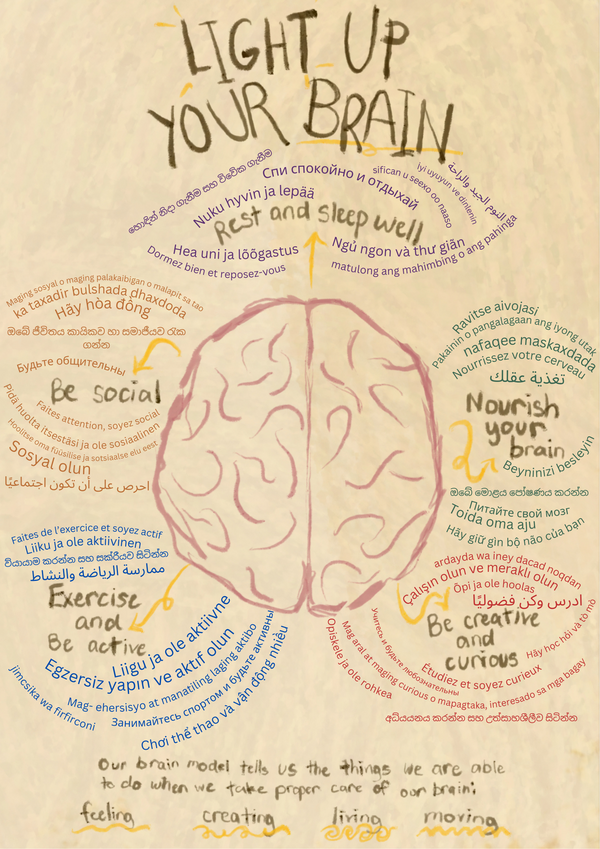 LIGHT UP
YOUR BRAIN
හොඳින් නිදා ගැනීම සහ විවේක ගැනීම
Спи спокойно и отдыхай
sifican u seexo oo naaso
Iyi uyuyun ve dinlenin
النوم الجيد والراحة
Nuku hyvin ja lepää
Rest and sleep well
Hea uni ja lõõgastus
Ngủ ngon và thư giãn
Dormez bien et reposez-vous
matulong ang mahimbing o ang pahinga
Maging sosyal o maging palakaibigan o malapit sa tao
ka taxadir bulshada dhaxdoda
Hãy hòa đồng
ඔබේ ජීවිතය කායිකව හා සමාජයව රැක
ගන්න
Будьте общительны
Be social
Pidä huolta itsestäsi ja ole sosiaalinen
Faites attention, soyez social
Hoolitse oma füüsilise ja sotsiaalse elu eest
Sosyal olun
احرص على أن تكون اجتماعيًا
Ravitse aivojasi
Pakainin o pangalagaan ang iyong utak
nafaqee maskaxdada
Nourrissez votre cerveau
تغذية عقلك
Nourish
your
brain
Beyninizi besleyin
ඔබේ මොළය පෝෂණය කරන්න
Питайте свой мозг
Toida oma aju
Hãy giữ gìn bộ não của bạn
Faites de l'exercice et soyez actif
Liiku ja ole aktiivinen
ව්යායාම කරන්න සහ සක්රීයව සිටින්න
ممارسة الرياضة والنشاط
Exercise
and
Be active.
Liigu ja ole aktiivne
Egzersiz yapın ve aktif olun
Mag- ehersisyo at manatiling laging aktibo
Занимайтесь спортом и будьте активны
jimcsika wa firfirconi
Chơi thể thao và vận động nhiều
ardayda wa iney dacad noqdan
Çalışın olun ve meraklı olun
Õpi ja ole hoolas
ادرس وكن فضوليًا
Be creative
and
curious
Учитесь и будьте любознательны
Mag arai at maging curious o mapagtaka, interesado sa mga bagay
Opiskele ja ole rohkea
Étudiez et soyez curieux
Hãy học hỏi và tò mò
අධ්යයනය කරන්න සහ උත්සාහශීලීව සිටින්න
Our brain model tells us the things we are able
to do when we take proper care of our brain:
feeling creating living moving